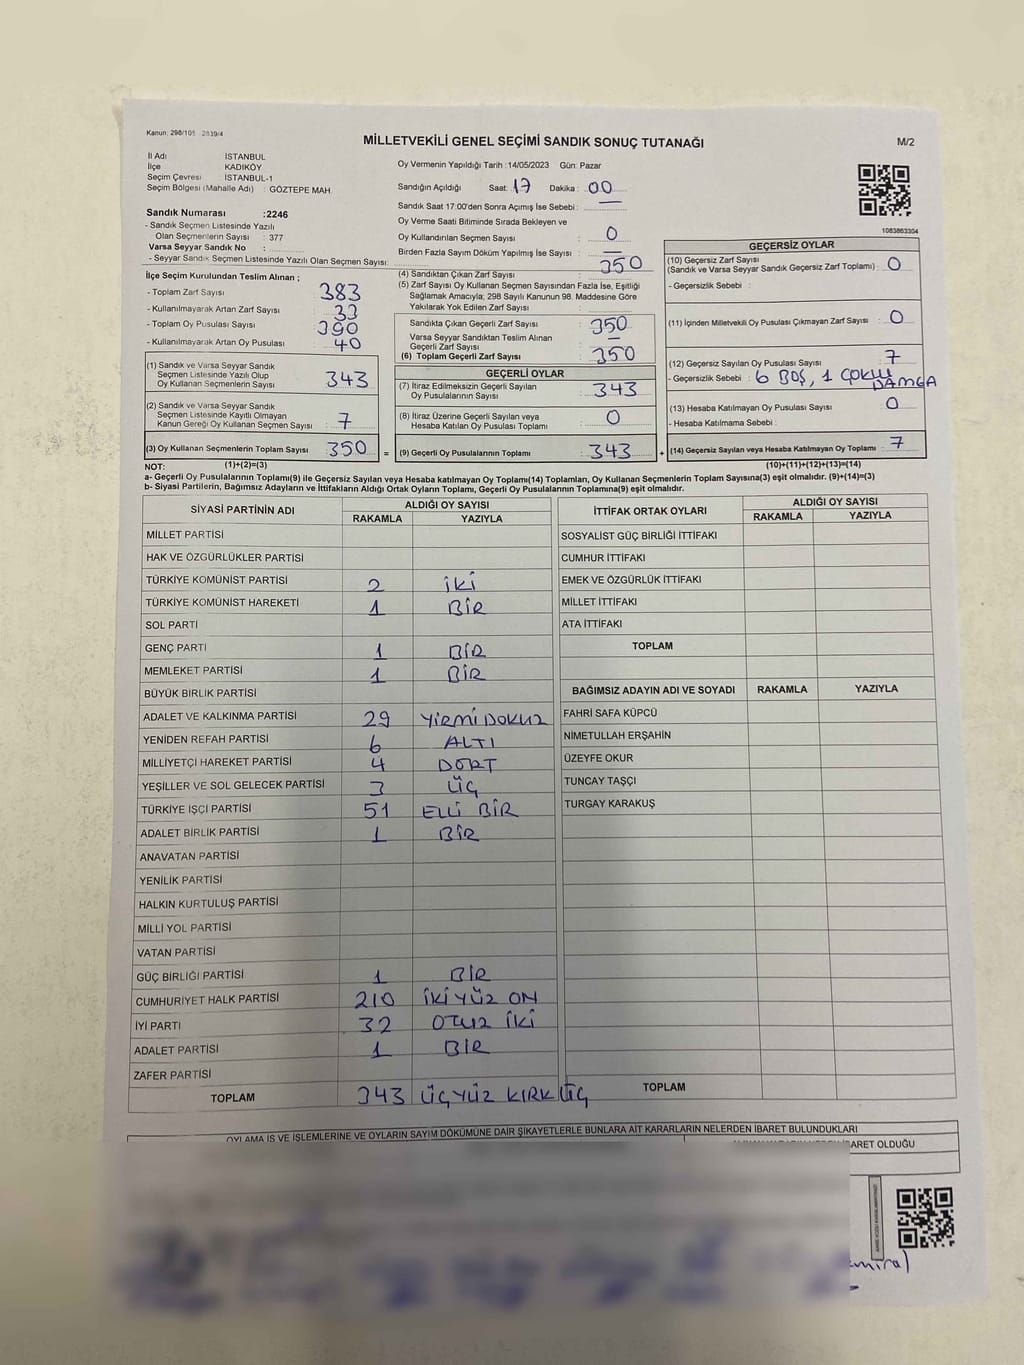 Kanun: 298/105 2839/4
MİLLETVEKİLİ GENEL SEÇİMİ SANDIK SONUÇ TUTANAĞI
M/2
İl Adı İSTANBUL
İlçe KADIKÖY
Seçim Çevresi İSTANBUL-1
Seçim Bölgesi (Mahalle Adı) : GÖZTEPE MAH.
Oy Vermenin Yapıldığı Tarih :14/05/2023 Gün: Pazar
Sandığın Açıldığı Saat: 17 Dakika : 00
Sandık Saat 17:00'den Sonra Açımış İse Sebebi :
Oy Verme Saati Bitiminde Sırada Bekleyen ve
Oy Kullandırılan Seçmen Sayısı : 0
Birden Fazla Sayım Döküm Yapılmış İse Sayısı :
Sandık Numarası :2246
- Sandık Seçmen Listesinde Yazılı
Olan Seçmenlerin Sayısı : 377
Varsa Seyyar Sandık No :
- Seyyar Sandık Seçmen Listesinde Yazılı Olan Seçmen Sayısı:
İlçe Seçim Kurulundan Teslim Alınan ;
- Toplam Zarf Sayısı : 383
- Kullanılmayarak Artan Zarf Sayısı : 33
- Toplam Oy Pusulası Sayısı : 390
- Kullanılmayarak Artan Oy Pusulası : 40
(1) Sandık ve Varsa Seyyar Sandık
Seçmen Listesinde Yazılı Olup
Oy Kullanan Seçmenlerin Sayısı : 343
(2) Sandık ve Varsa Seyyar Sandık
Seçmen Listesinde Kayıtlı Olmayan
Kanun Gereği Oy Kullanan Seçmen Sayısı : 7
(3) Oy Kullanan Seçmenlerin Toplam Sayısı : 350 =
(4) Sandıktan Çıkan Zarf Sayısı : 350
(5) Zarf Sayısı Oy Kullanan Seçmen Sayısından Fazla İse, Eşitliği
Sağlamak Amacıyla; 298 Sayılı Kanunun 98. Maddesine Göre
Yakılarak Yok Edilen Zarf Sayısı :
Sandıkta Çıkan Geçerli Zarf Sayısı : 350
Varsa Seyyar Sandıktan Teslim Alınan
Geçerli Zarf Sayısı : —
(6) Toplam Geçerli Zarf Sayısı : 350
GEÇERLİ OYLAR
(7) İtiraz Edilmeksizin Geçerli Sayılan
Oy Pusulalarının Sayısı : 343
(8) İtiraz Üzerine Geçerli Sayılan veya
Hesaba Katılan Oy Pusulası Toplamı : 0
(9) Geçerli Oy Pusulalarının Toplamı : 343 +
1083863304
GEÇERSİZ OYLAR
(10) Geçersiz Zarf Sayısı
(Sandık ve Varsa Seyyar Sandık Geçersiz Zarf Toplamı) : 0
- Geçersizlik Sebebi :
(11) İçinden Milletvekili Oy Pusulası Çıkmayan Zarf Sayısı : 0
(12) Geçersiz Sayılan Oy Pusulası Sayısı : 7
- Geçersizlik Sebebi : 6 BOŞ, 1 ÇOKLU DAMGA
(13) Hesaba Katılmayan Oy Pusulası Sayısı : 0
- Hesaba Katılmama Sebebi :
(14) Geçersiz Sayılan veya Hesaba Katılmayan Oy Toplamı : 7
NOT: (1)+(2)=(3) (10)+(11)+(12)+(13)=(14)
a- Geçerli Oy Pusulalarının Toplamı(9) ile Geçersiz Sayılan veya Hesaba katılmayan Oy Toplamı(14) Toplamları, Oy Kullanan Seçmenlerin Toplam Sayısına(3) eşit olmalıdır. (9)+(14)=(3)
b- Siyasi Partilerin, Bağımsız Adayların ve İttifakların Aldığı Ortak Oyların Toplamı, Geçerli Oy Pusulalarının Toplamına(9) eşit olmalıdır.
SİYASİ PARTİNİN ADI ALDIĞI OY SAYISI
RAKAMLA YAZIYLA
MİLLET PARTİSİ
HAK VE ÖZGÜRLÜKLER PARTİSİ
TÜRKİYE KOMÜNİST PARTİSİ 2 İKİ
TÜRKİYE KOMÜNİST HAREKETİ 1 BİR
SOL PARTİ
GENÇ PARTİ 1 BİR
MEMLEKET PARTİSİ 1 BİR
BÜYÜK BİRLİK PARTİSİ
ADALET VE KALKINMA PARTİSİ 29 YİRMİ DOKUZ
YENİDEN REFAH PARTİSİ 6 ALTI
MİLLİYETÇİ HAREKET PARTİSİ 4 DÖRT
YEŞİLLER VE SOL GELECEK PARTİSİ 3 ÜÇ
TÜRKİYE İŞÇİ PARTİSİ 51 ELLİ BİR
ADALET BİRLİK PARTİSİ 1 BİR
ANAVATAN PARTİSİ
YENİLİK PARTİSİ
HALKIN KURTULUŞ PARTİSİ
MİLLİ YOL PARTİSİ
VATAN PARTİSİ
GÜÇ BİRLİĞİ PARTİSİ 1 BİR
CUMHURİYET HALK PARTİSİ 210 İKİ YÜZ ON
İYİ PARTİ 32 OTUZ İKİ
ADALET PARTİSİ 1 BİR
ZAFER PARTİSİ
TOPLAM 343 ÜÇYÜZ KIRK ÜÇ
İTTİFAK ORTAK OYLARI ALDIĞI OY SAYISI
RAKAMLA YAZIYLA
SOSYALİST GÜÇ BİRLİĞİ İTTİFAKI
CUMHUR İTTİFAKI
EMEK VE ÖZGÜRLÜK İTTİFAKI
MİLLET İTTİFAKI
ATA İTTİFAKI
TOPLAM
BAĞIMSIZ ADAYIN ADI VE SOYADI RAKAMLA YAZIYLA
FAHRİ SAFA KÜPCÜ
NİMETULLAH ERŞAHİN
ÜZEYFE OKUR
TUNCAY TAŞÇI
TURGAY KARAKUŞ
TOPLAM
OYLAMA İŞ VE İŞLEMLERİNE VE OYLARIN SAYIM DÖKÜMÜNE DAİR ŞİKAYETLERLE BUNLARA AİT KARARLARIN NELERDEN İBARET BULUNDUKLARI
İBARET OLDUĞU